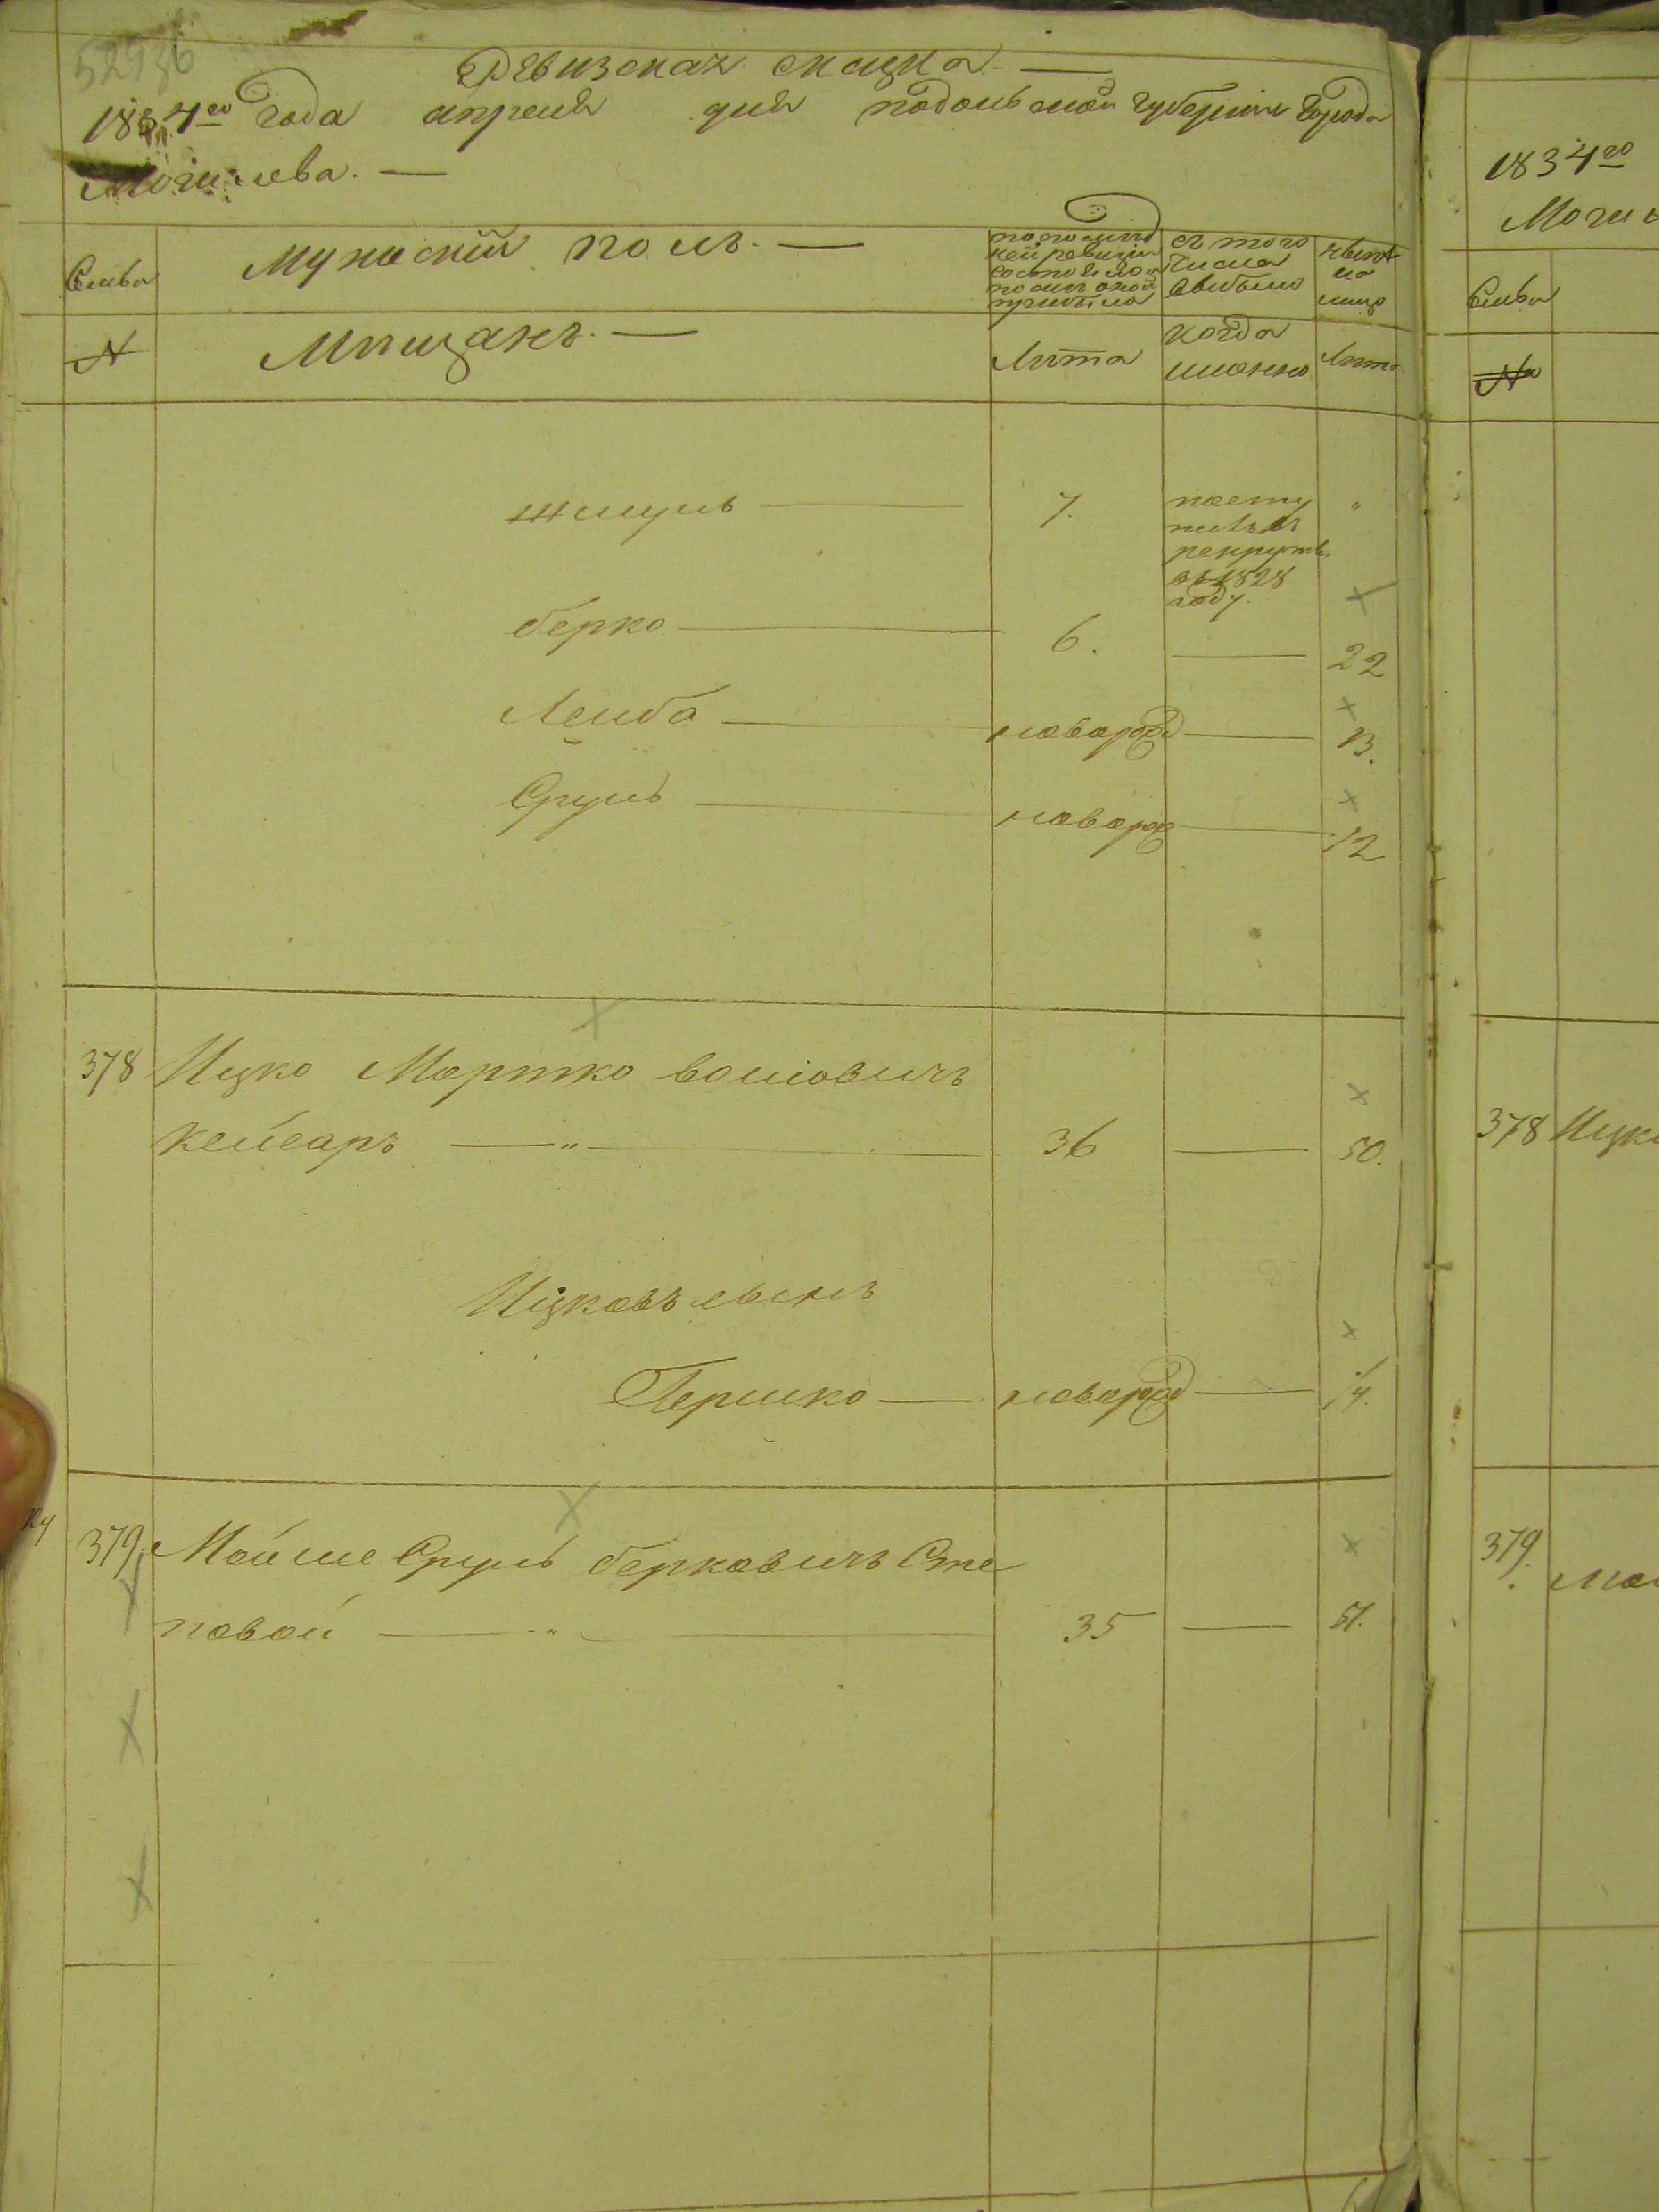 52936
Ревизская скаска
1834го года апреля дня подольской губернии Города
Могилева.
Семьи
мужеский полъ.
по последней ревизии состояло и после оной прибыло
съ того числа выбыло
ныне на лицо
№
Мещанъ.
Лета
когда именно
Лета
Шмуль 7. поступилъ въ рекруты въ 1828 году. "
берко 6. 22
Лейба новорожд 13.
Сруль новорож 12
378 Ицко Мортковолиовичъ
Кейсаръ " 36 50.
Ицковъ сынъ
Гершко новорожд 14.
379. Мойше Сруль берковичъ Сте
повой " 35 51.
1834го
Моги
Семьи
№
378 Ицко
379. Мой